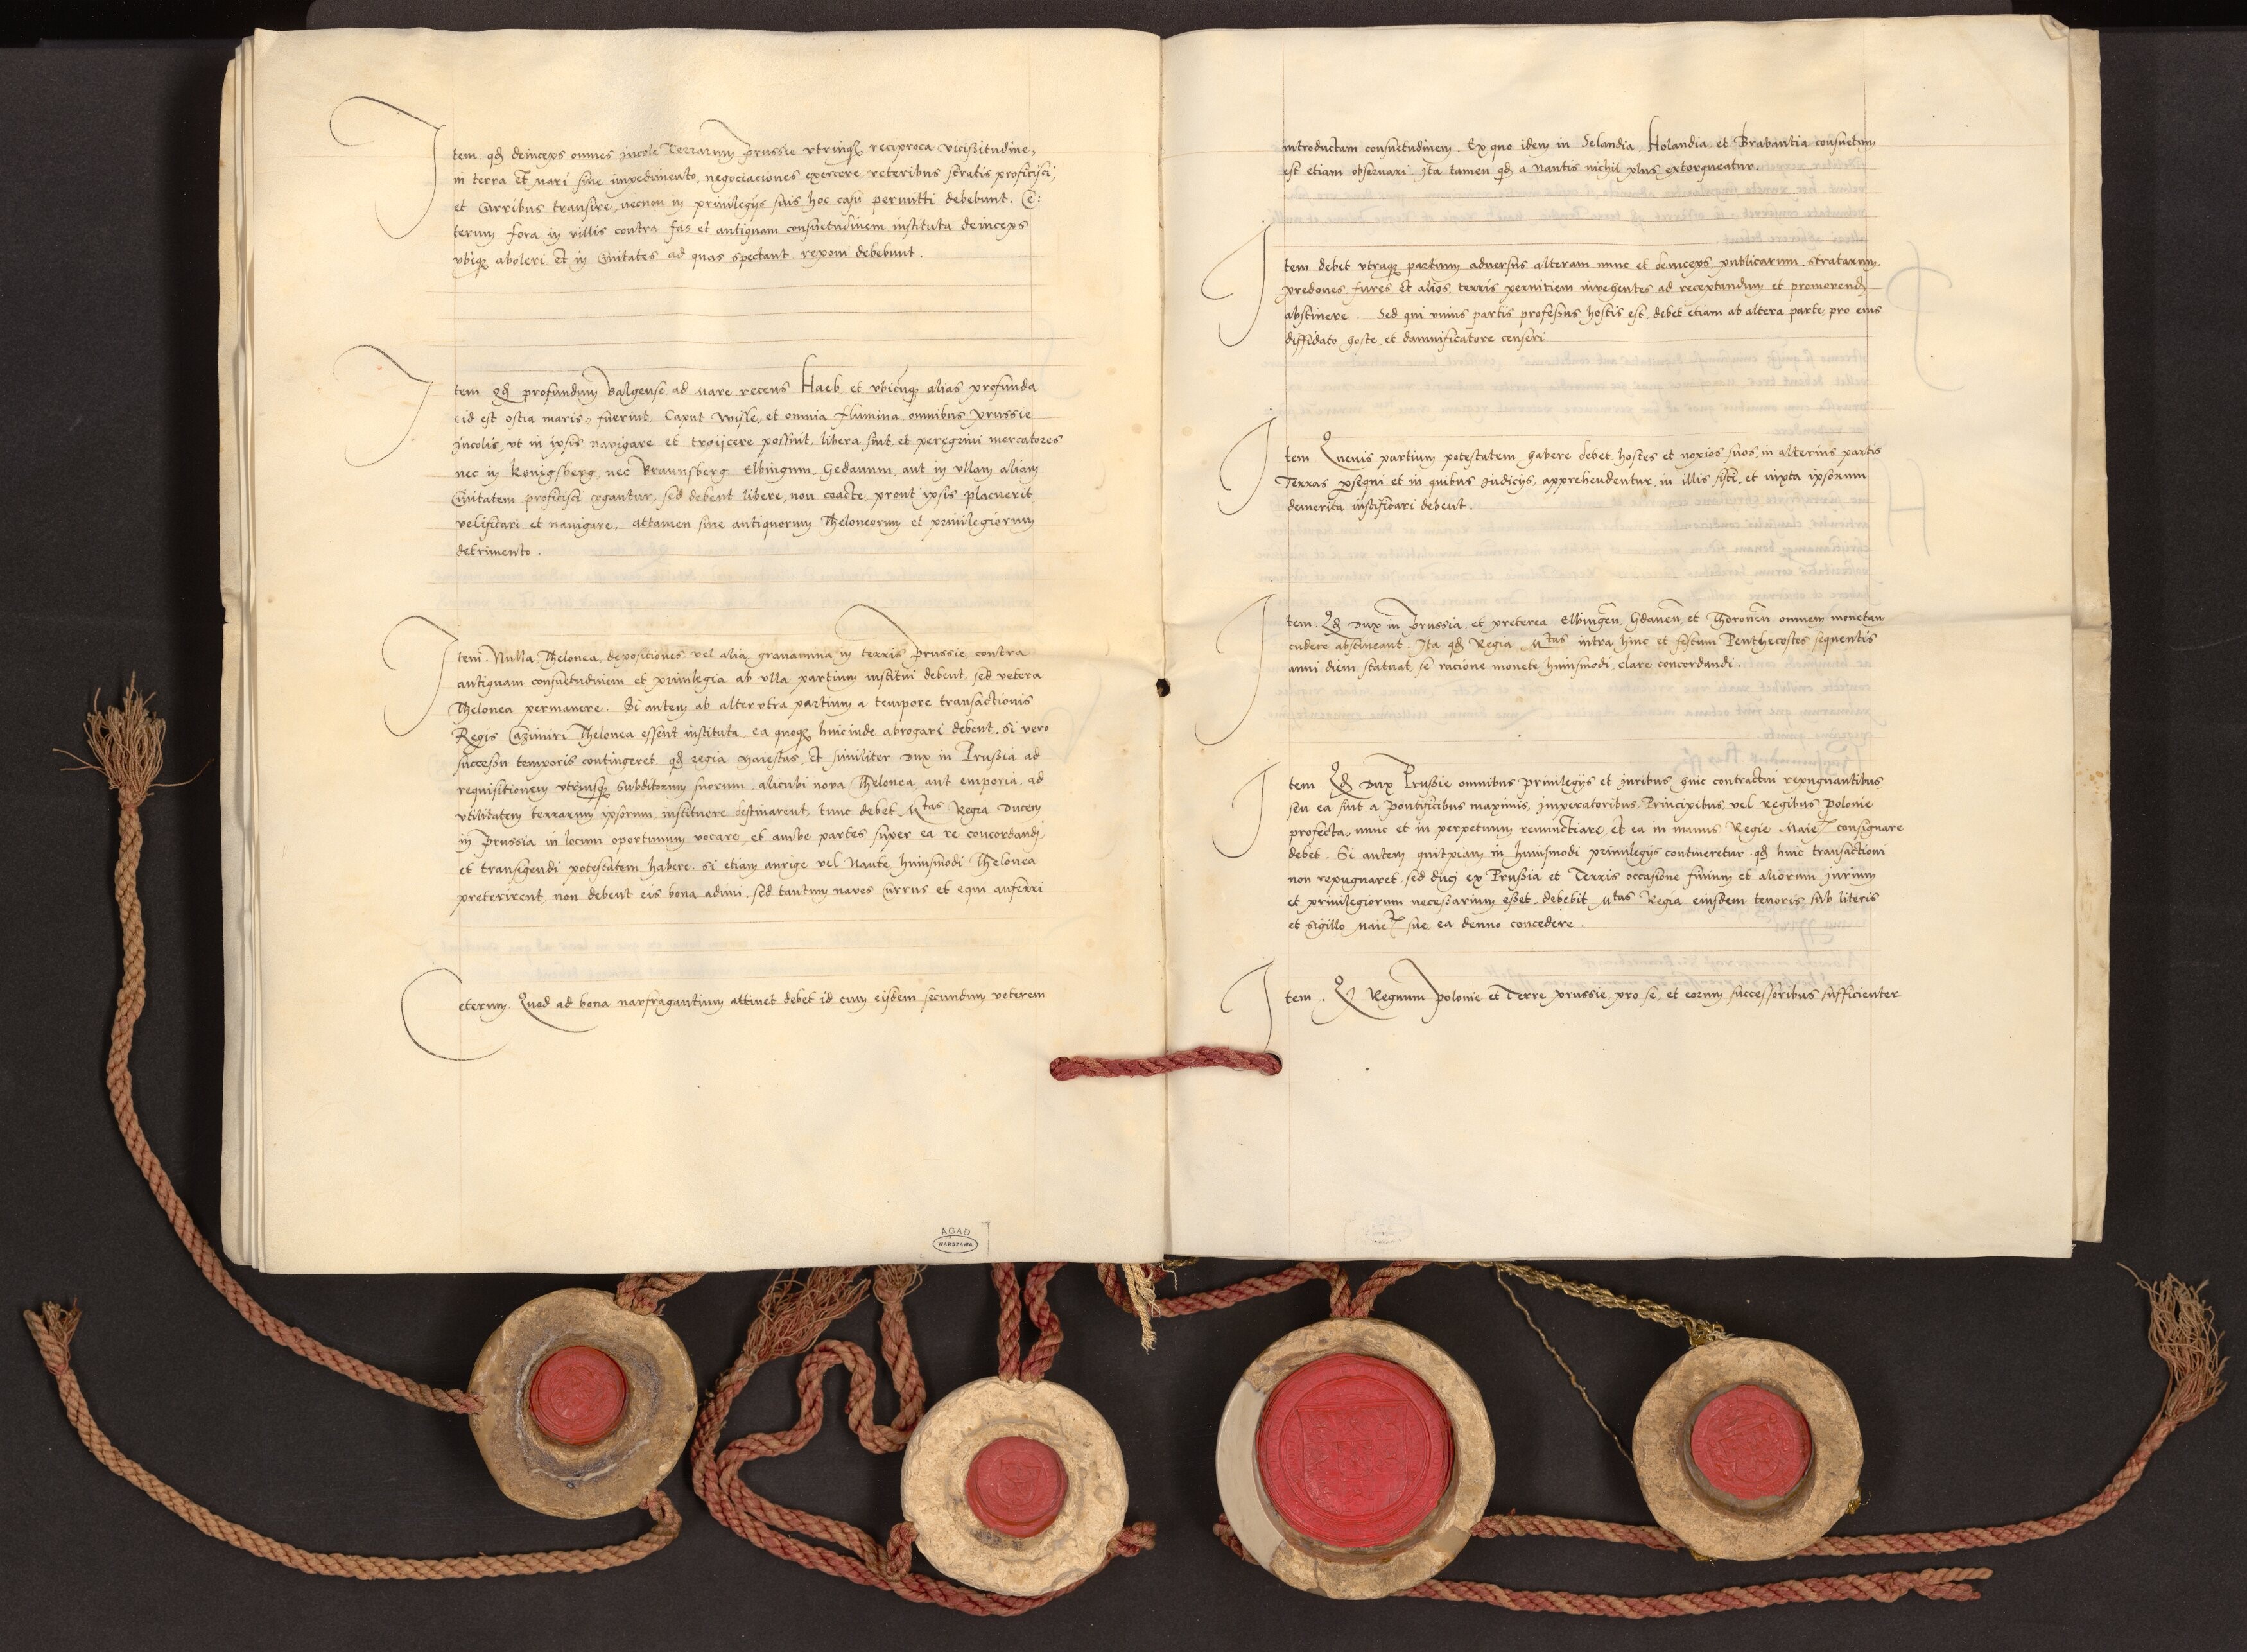 Item. qđ deinceps omnes Incole Terrarum Prussie vtrinqʒ reciproca vicißitudine,
in terra et mari sine impedimento, negociaciones exercere, veteribus stratis proficisci,
et Curribus transire, necnon in priuilegijs suis hoc casu permitti debebunt. Ce:
terum fora in villis contra fas et antiquam consuetudinem instituta deinceps
vbiqʒ aboleri et in Ciuitates ad quas spectant reponi debebunt.
Item qđ profundum Balgense ad mare recens Haeb, et vbicunqʒ alias profunda
(id est ostia maris) fuerint, Caput Wisle, et omnia flumina, omnibus prussie
Incolis, vt in ipsis nauigare et troijcere possint, libera sint, et peregrini mercatores
nec in konigsberg, nec Braunsberg, Elbingum, Gedanum, aut in vllam aliam
Ciuitatem proficisci cogantur, sed debent libere, non coacte, prout ipsis placuerit
velificari et nauigare. attamen sine antiquorum Theloneorum et priuilegiorum
detrimento.
Item. Nulla Thelonea, depositiones vel alia grauamina in terris Prussie contra
antiquam consuetudinem et priuilegia ab vlla partium institui debent, sed vetera
Thelonea permanere. Si autem ab alterutra partium a tempore transactionis
Regis Cazimiri Thelonea essent instituta, ea quoqʒ hincinde abrogari debent. Si vero
successu temporis contingeret, qđ regia Maiestas, et similiter Dux in Prußia ad
requisitionem vtriusqʒ Subditorum suorum, alicubi noua Thelonea aut emporia, ad
vtilitatem terrarum ipsorum instituere destinarent, tunc debet Mtas Regia Ducem
in Prussia in locum oportunum vocare, et ambe partes super ea re concordandi
et transigendi potestatem habere. Si etiam aurige vel Naute, huiusmodi Thelonea
preterirent, non debent eis bona adimi, sed tantum naues Currus et equi auferri
Ceterum. Quod ad bona naufragantium attinet debet id cum eisdem secundum veterem
AGAD
WARSZAWA
introductam consuetudinem. Ex quo idem in Selandia, Holandia, et Brabantia consuetum
est etiam obseruari. Ita tamen qđ a Nautis nichil plus extorqueatur.
Item debet vtraqʒ partium aduersus alteram nunc et deinceps publicarum stratarum,
predones, fures et alios terris pernitiem inuehentes ad receptandum et promouendum
abstinere. Sed qui vnius partis profeßus hostis est, debet etiam ab altera parte, pro eius
diffidato hoste, et damnificatore censeri
Item Queuis partium potestatem habere debet, hostes et noxios suos, in alterius partis
Terras persequi, et in quibus Iudicijs, apprehendentur, in illis sisti, et iuxta ipsorum
demerita iustificari debent.
Item. Qđ Dux in Prussia, et preterea Elbingen, Gdanen, et Thoronen omnem monetam
cudere abstineant. Ita qđ Regia Mtas intra hinc et festum Penthecostes sequentis
anni diem statuat, se racione monete huiusmodi, clare concordandi.
Item. Qđ Dux Prußie omnibus priuilegijs et Iuribus huic contractui repugnantibus
seu ea sint a Pontificibus maximis, Imperatoribus, Principibus vel Regibus Polonie
profecta, nunc et in perpetuum renunctiare, et ea in manus Regie Maietis consignare
debet. Si autem quitpiam in huiusmodi priuilegijs contineretur qđ huic transactioni
non repugnaret, sed duci ex Prußia et Terris occasione finium et aliorum Iurium
et priuilegiorum neceßarium eßet, debebit Mtas Regia eiusdem tenoris sub literis
et sigillo Maietis sue, ea denuo concedere.
Item. Qđ Regnum Polonie et Terre prussie, pro se, et eorum successoribus sufficienter